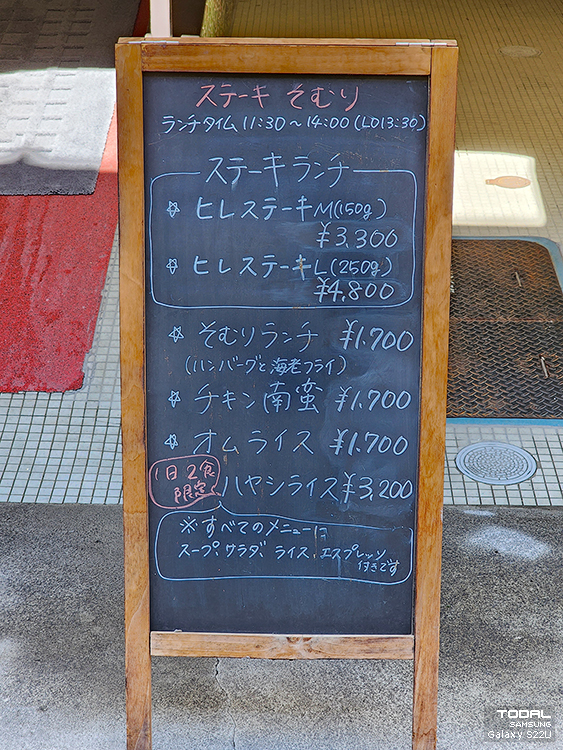 ステーキ そむり
ランチタイム 11:30〜14:00(LO13:30)
ステーキランチ
☆ ヒレステーキM(150g)
¥3,300
☆ ヒレステーキL(250g)
¥4,800
☆ そむりランチ ¥1,700
(ハンバーグと海老フライ)
☆ チキン南蛮 ¥1,700
☆ オムライス ¥1,700
1日2食
限定 ハヤシライス ¥3,200
※すべてのメニューに
スープ、サラダ、ライス、エスプレッソ
付きです
TODAL
SAMSUNG
Galaxy S22U